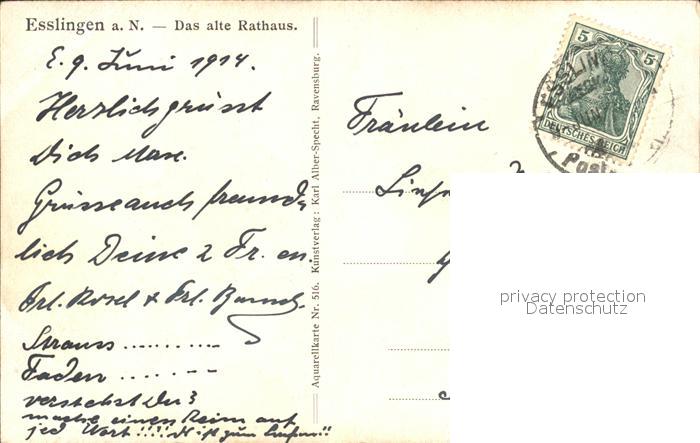 Esslingen a. N. — Das alte Rathaus.
E. 9. Juni 1914.
Herzlich grüsst
Dich
Grüsse auch freund-
lich Deine 2 Fr. 
Frl. Rosel & Frl.
Strauss ..........
Faden ..........
verstehst Du?
mache einen Reim auf
jed Wort !!!!
Aquarellkarte Nr. 516. Kunstverlag: Karl Alber-Specht, Ravensburg.
Fräulein
5 5
DEUTSCHES REICH
ESSLIN
privacy protection
Datenschutz